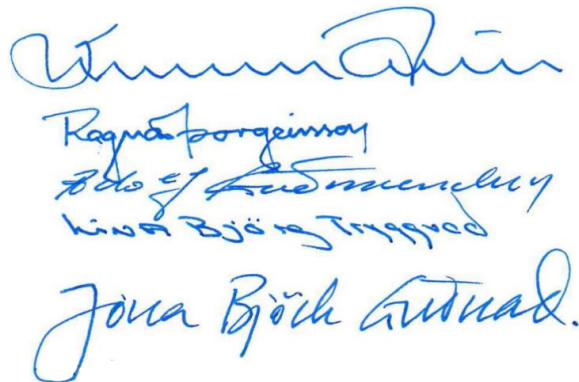 Ragnar Þorgeirsson
Adolf Guðmundsson
Lína Björg Tryggvad
Jóna Björk Guðnad.